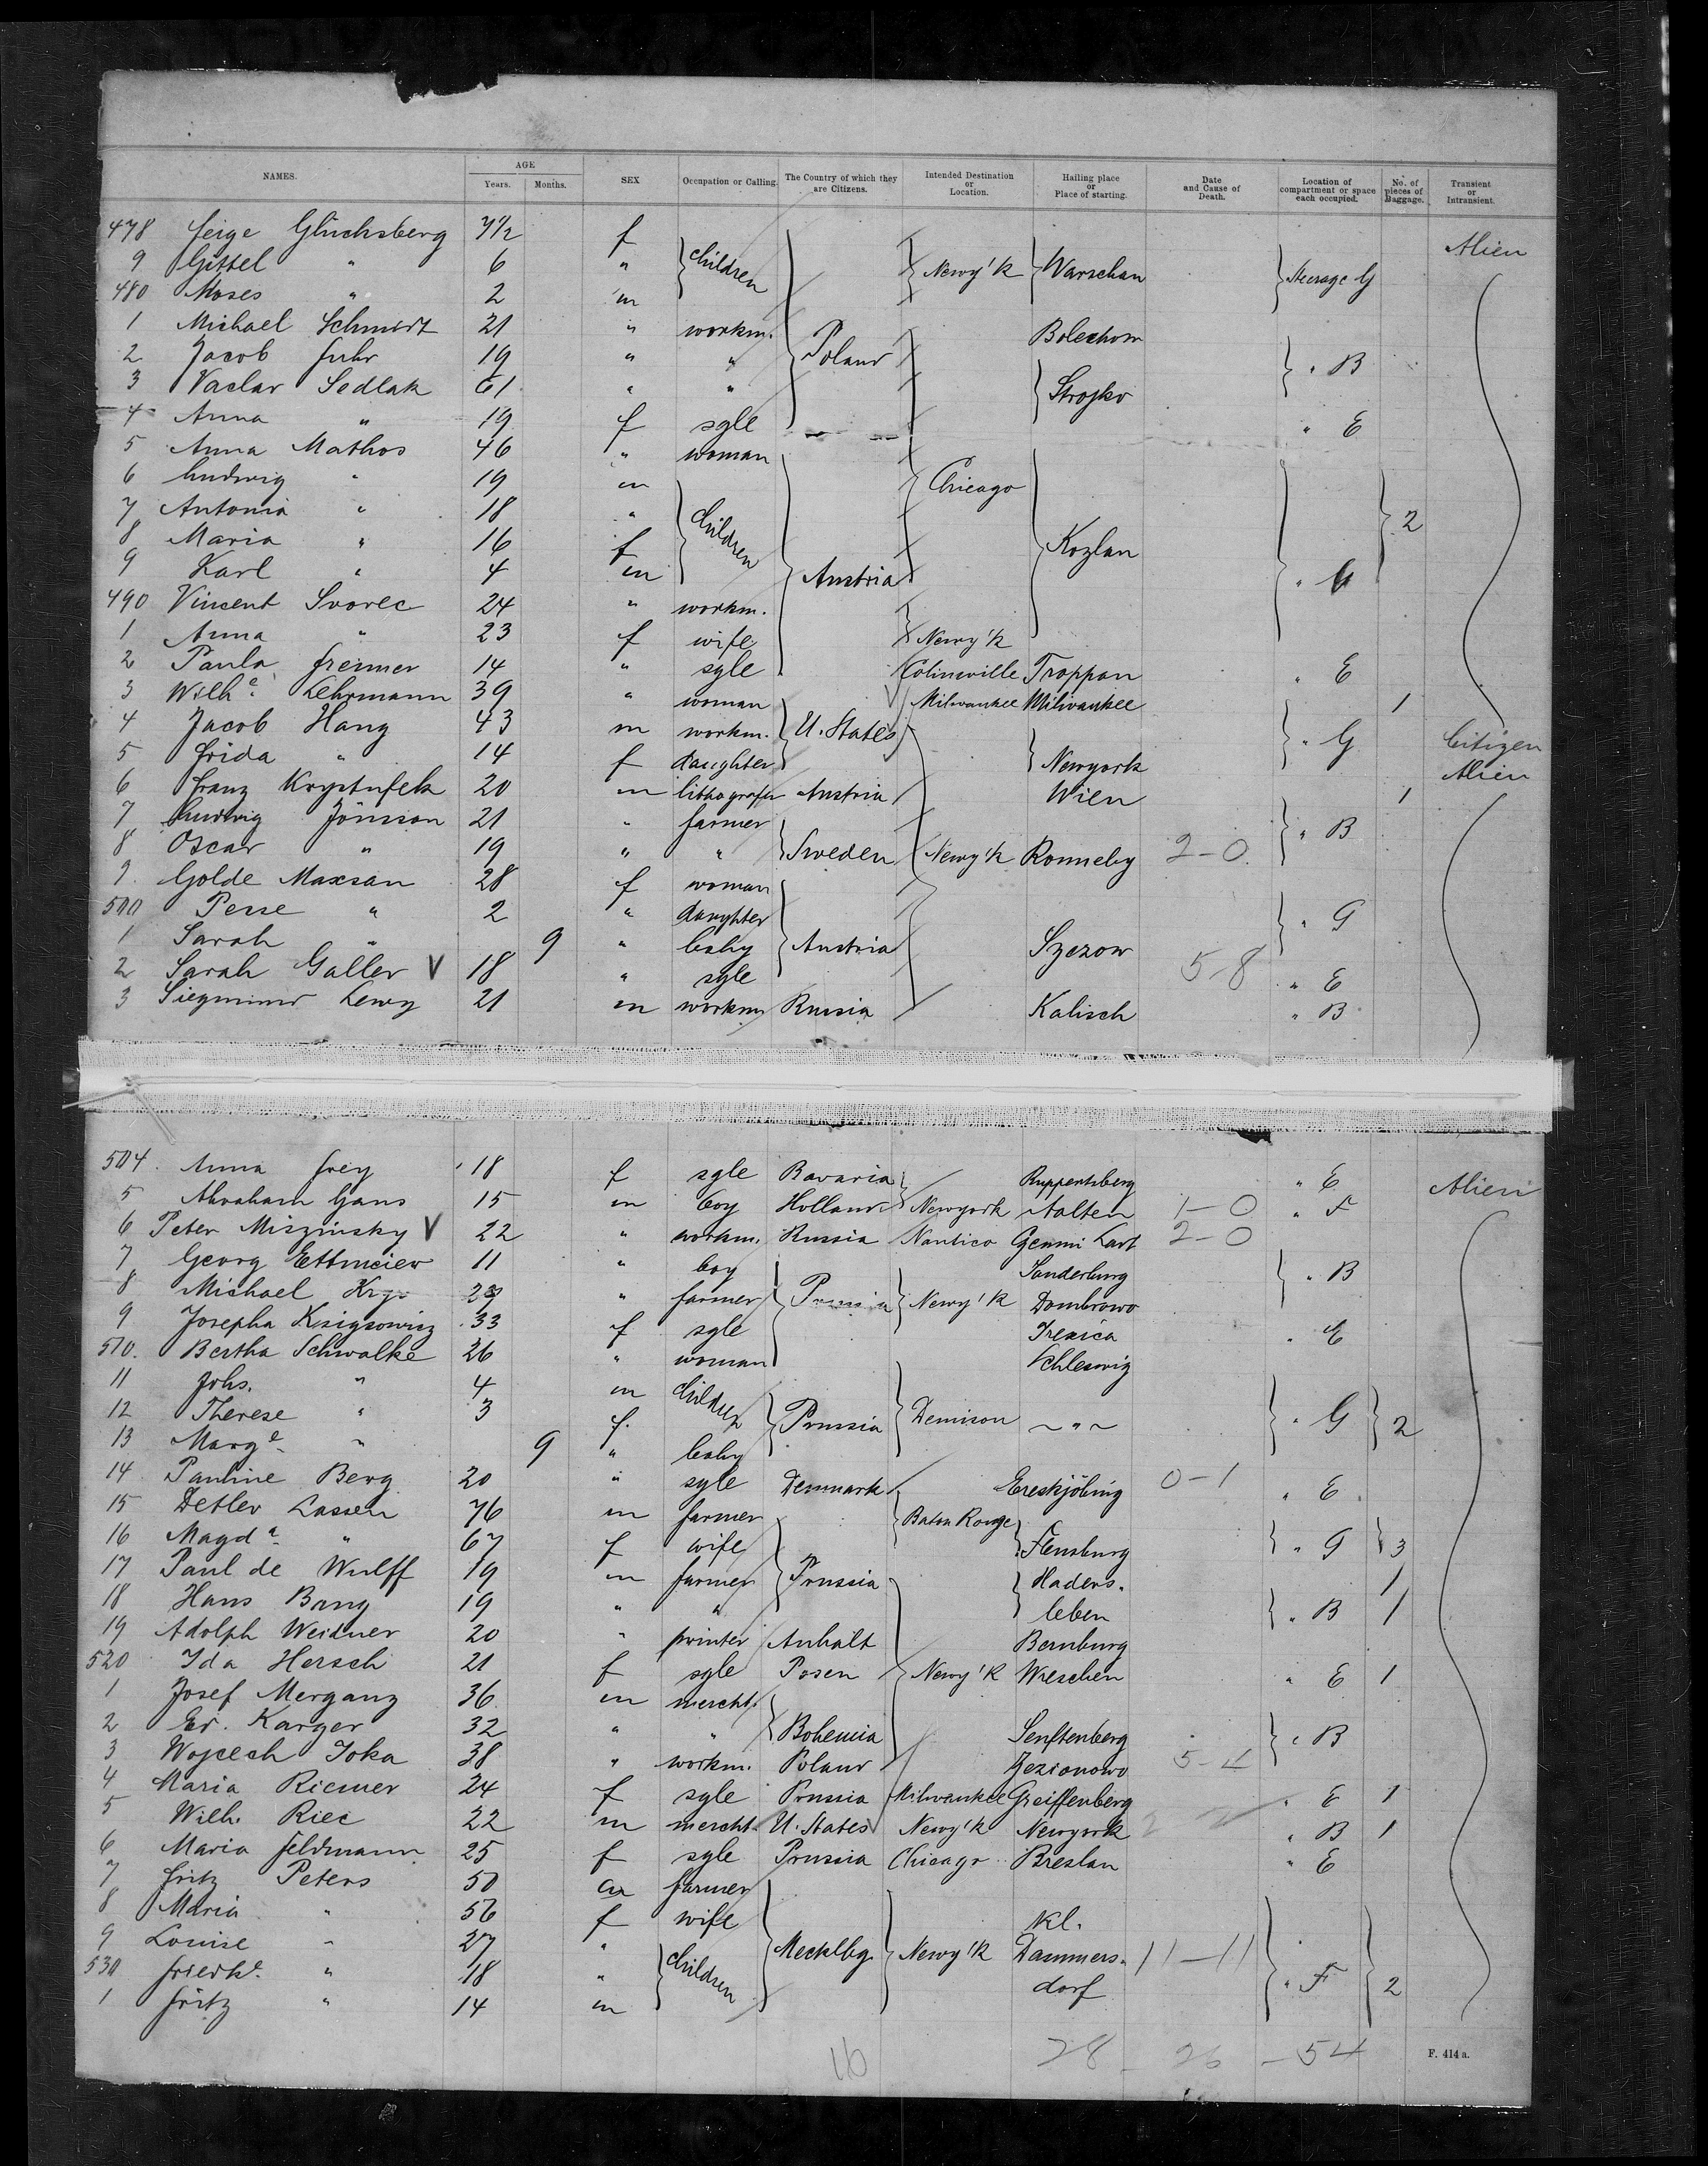 NAMES. AGE Years. Months. SEX Occupation or Calling. The Country of which they are Citizens. Intended Destination or Location. Hailing place or Place of starting. Date and Cause of Death. Location of compartment or space each occupied. No. of pieces of Baggage. Transient or Intransient.
478 Feige Glücksberg 7½ f Alien
9 Gittel " 6 " children Newy'k Warschau Steerage G
480 Moses " 2 m
1 Michael Schmidt 21 " workm. Bolechow
2 Jacob Fuhr 19 " " Poland " B
3 Vaclav Sedlak 61 " " Stropko
4 Anna " 19 f sgle " E
5 Anna Mathos 46 " woman
6 Ludwig " 19 m Chicago
7 Antonia " 18 " children 2
8 Maria " 16 f Kozlan
9 Karl " 4 m Austria "
490 Vincent Svorec 24 " workm.
1 Anna " 23 f wife Newy'k
2 Paula 14 " sgle Colinsville Troppau " E
3 Wilhe. Lehrmann 39 " woman Milwaukee Milwaukee 1
4 Jacob Hang 43 m workm. U. States " G Citizen
5 Frida " 14 f daughter Newyork Alien
6 Franz Krystufek 20 m lithografer Austria Wien 1
7 Ludwig Jönsson 21 " farmer " B
8 Oscar " 19 " " Sweden Newy'k Ronneby 2-0
9. Golde Maxsan 28 f woman
500 Perse " 2 " daughter " G
1 Sarah " 9 " baby Austria Szezow
2 Sarah Galler V 18 " sgle 5-8 " E
3 Siegmund Lewy 21 m workm Russia Kalisch " B
504. Anna Frey 18 f sgle Bavaria Ruppertsberg " E Alien
5 Abraham Gans 15 m boy Holland Newyork Aalten 1-0 " F
6 Peter Miszinsky V 22 " workm. Russia Nantico 2-0
7 Georg Ettmeier 11 " boy Sonderburg " B
8 Michael " farmer Prussia Newy'k Dombrowo
9 Josepha 33 f sgle " E
510. Bertha Schwalke 26 " woman Schleswig
11 Johs. " 4 m children
12 Therese " 3 f. Prussia Denison ~ " ~ " G 2
13 Marge. " 9 " baby
14 Pauline Berg 20 " sgle Denmark Ereskjöbing 0-1 " E
15 Detlev Lassen 76 m farmer Baton Rouge
16 Magda. " 67 f wife Flensburg " G 3
17 Paul de Wulff 19 m farmer Prussia Haders- 1
18 Hans Bang 19 " " leben " B 1
19 Adolph Weidner 20 " printer Anhalt Bernburg
520 Ida Hersch 21 f sgle Posen Newy'k Wreschen " E 1
1 Josef Merganz 36 m mercht.
2 Ed. Karger 32 " " Bohemia Senftenberg " B
3 Wojcech Joka 38 " workm. Poland Jezionowo 5-4
4 Maria Riemer 24 f sgle Prussia Milwaukee Greiffenberg " E 1
5 Wilh. Riec 22 m mercht. U. States Newy'k Newyork " B 1
6 Maria Feldmann 25 f sgle Prussia Chicago Breslau " E
7 Fritz Peters 50 m farmer
8 Maria " 56 f wife Kl.
9 Louise " 27 " Mecklbg. Newy'k Dammers- 11-11
530 Friedke. " 18 " children dorf " F 2
1 Fritz " 14 m
16 28 - 26 - 54 F. 414 a.